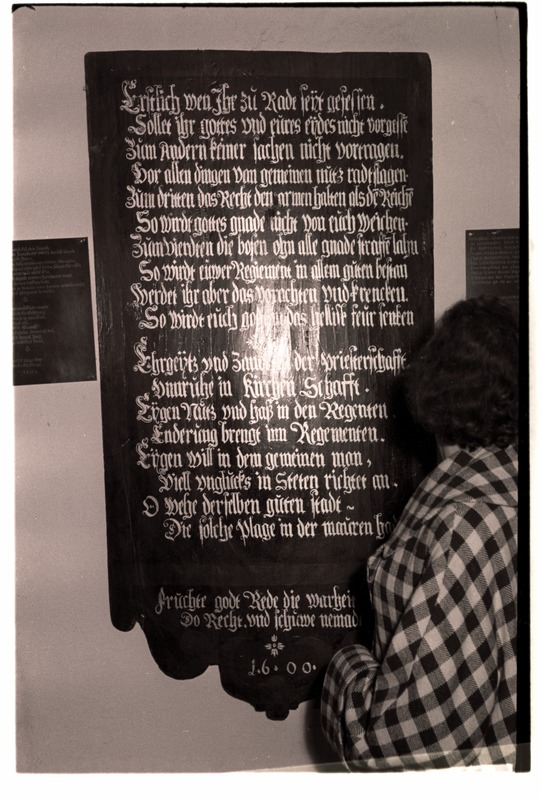 Erstlich wen Ihr zu Radt seyt gesessen.
Sollet ihr gottes vnd eures eydes nicht vorgiss
Zum Andern keiner sachen nicht vortragen.
Vor allen dingen van gemeinen nutz radtslagen.
Zum dritten das Recht den armen halten als de Reiche
So wirdt gottes gnade nicht von euch weichen.
Zum vierdten die bosen ohn alle gnade straffe lahn
So wirdt euwer Regiement in allem guten bestan
Werdet ihr aber das vorechten vnd krencken.
So wirdt euch gott in das hellise feur sencken
Ehrgeytz vnd Zanck der Priesterschafft
Vnnruhe in Kirchen Schafft.
Eygen Nutz vnd Haß in den Regenten
Enderung brengt inn Regementen.
Eygen will in dem gemeinen man,
Viell vnglucks in Steten richtet an.
O wehe derselben guten stadt ~
Die solche Plage in der mauren ha
Fruchte godt Rede die warheit
Do Recht vnd schuwe nemad
1.6.0 0.